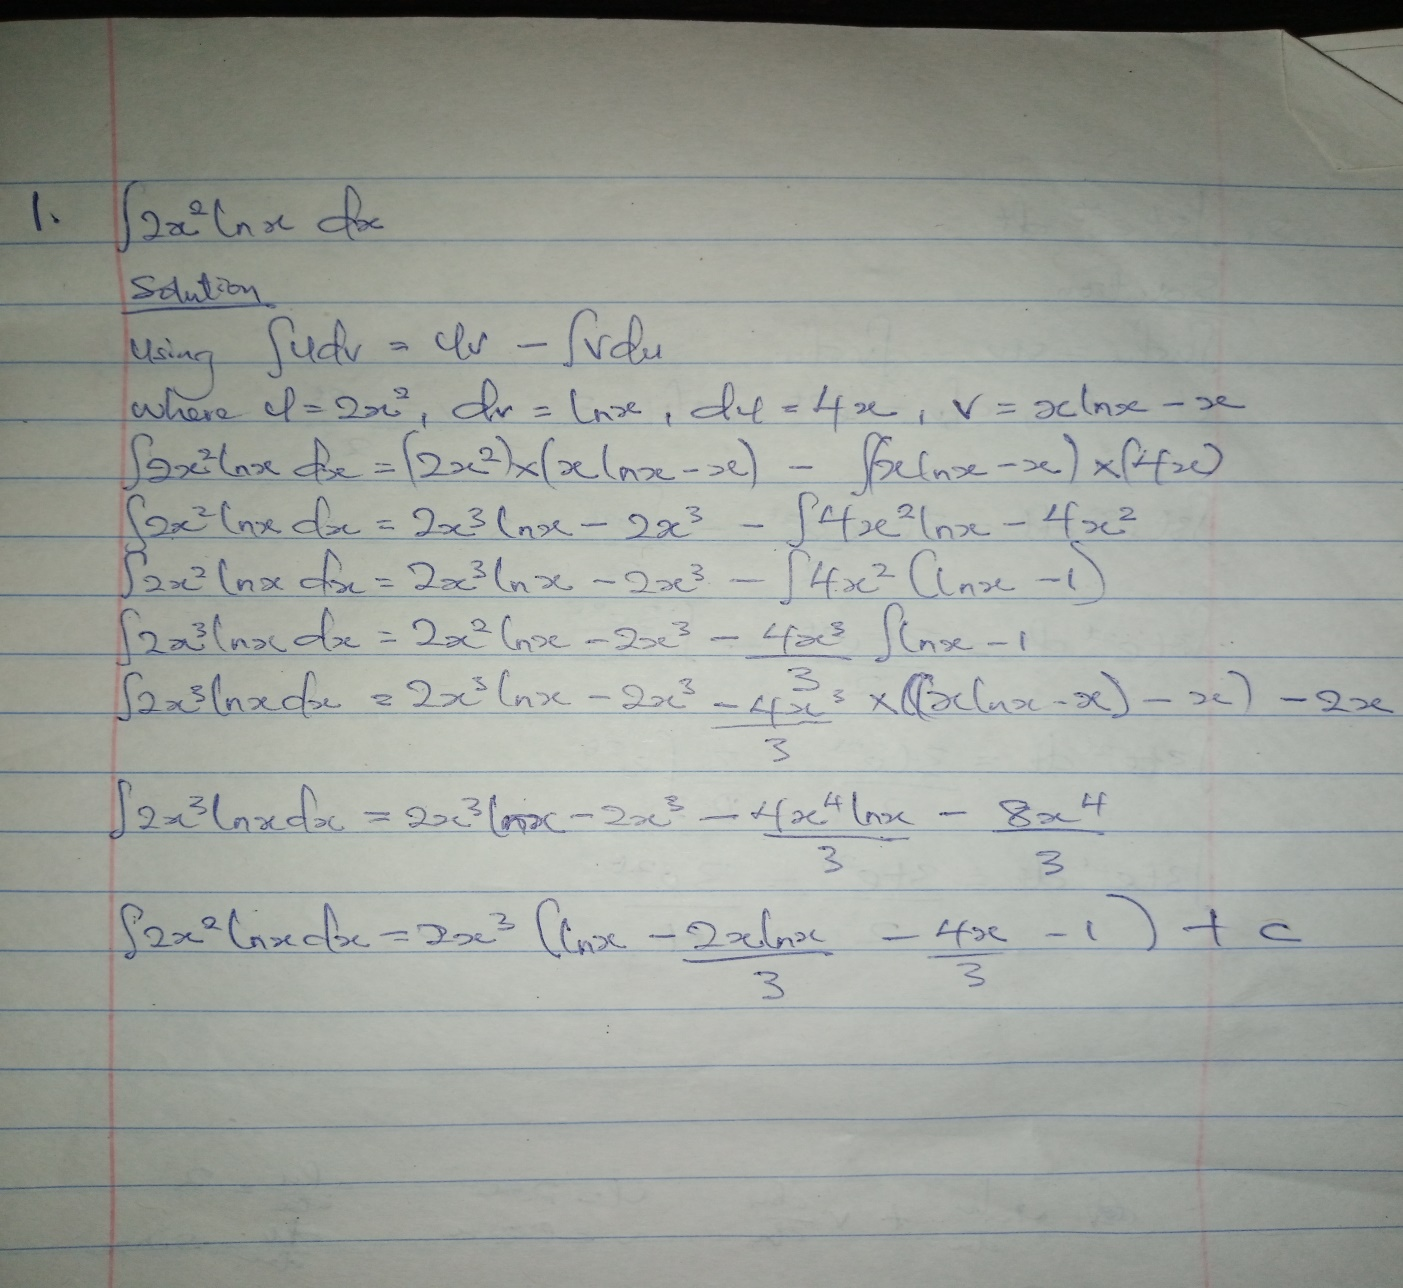 1. ∫2x² lnx dx
Solution
Using ∫udv = uv - ∫vdu
where u = 2x², dv = lnx, du = 4x, v = xlnx - x
∫2x² lnx dx = (2x²)×(xlnx - x) - ∫(xlnx - x)×(4x)
∫2x² lnx dx = 2x³ lnx - 2x³ - ∫4x² lnx - 4x²
∫2x² lnx dx = 2x³ lnx - 2x³ - ∫4x² (lnx - 1)
∫2x³ lnx dx = 2x² lnx - 2x³ - 4x³/3 ∫lnx - 1
∫2x³ lnx dx = 2x³ lnx - 2x³ - 4x³/3 ×((xlnx - x) - x) - 2x
∫2x³ lnx dx = 2x³ lnx - 2x³ - 4x⁴ lnx/3 - 8x⁴/3
∫2x² lnx dx = 2x³ (lnx - 2xlnx/3 - 4x/3 - 1) + c